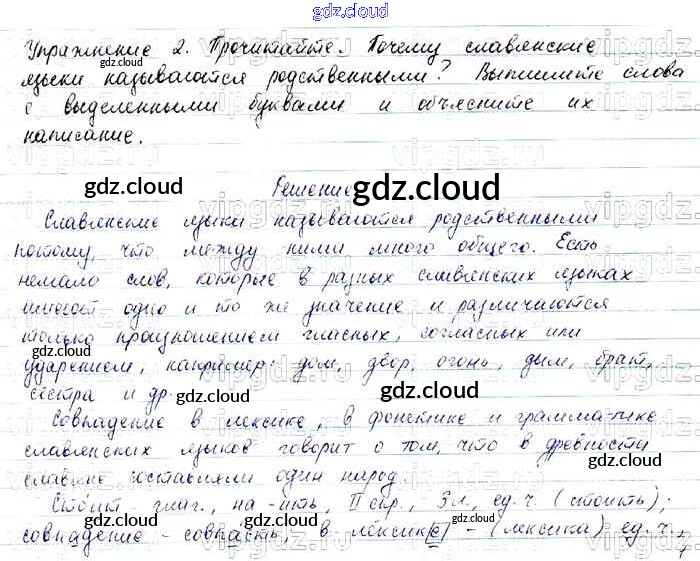 gdz.cloud
Упражнение 2. Прочитайте. Почему славянские
языки называются родственными? Выпишите слова
с выделенными буквами и объясните их
написание.
Решение
Славянские языки называются родственными
потому, что между ними много общего. Есть
немало слов, которые в разных славянских языках
имеют одно и то же значение и различаются
только произношением гласных, согласных или
ударением, например: дом, двор, огонь, дым, брат,
сестра и др.
Совпадение в лексике, в фонетике и грамматике
славянских языков говорит о том, что в древности
славяне составляли один народ.
Стоит глаг., на -ить, II спр., 3 л., ед. ч. (стоить);
совпадение - совпасть, в лексик[е] - (лексика) ед. ч.,